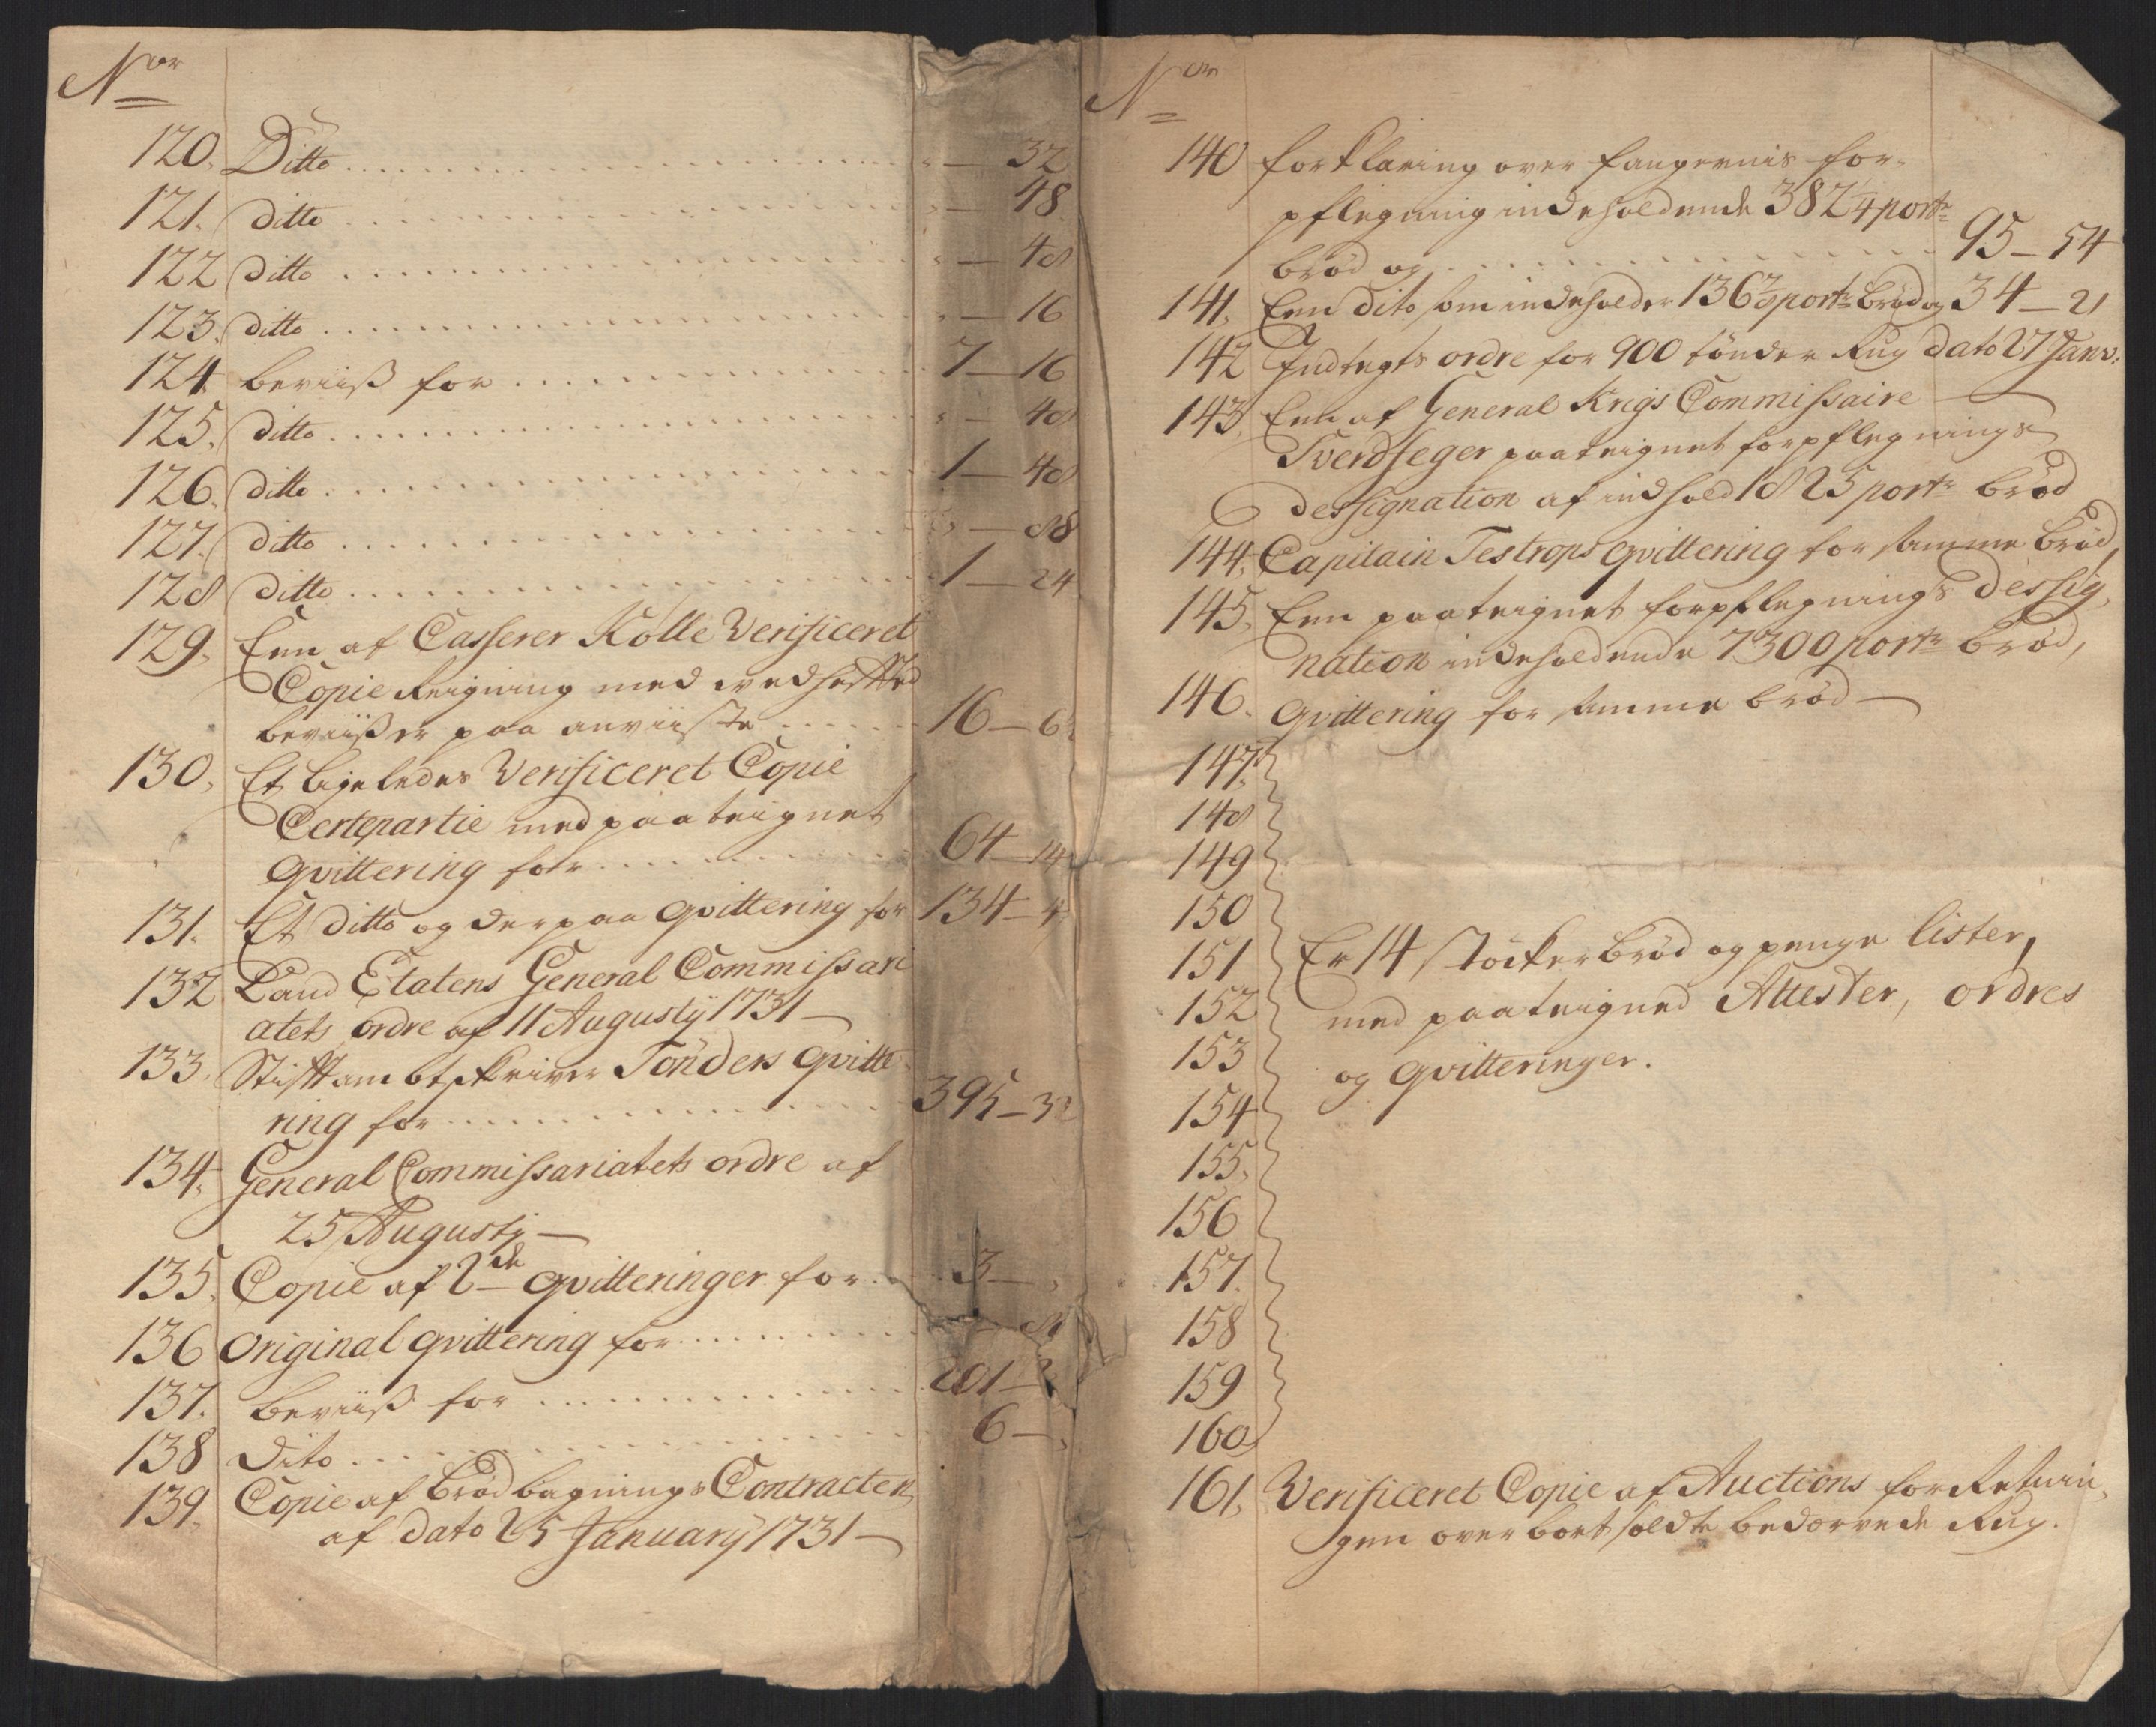 Nor
120. Ditto . . . . . . . . „ — 32
121. ditto . . . . . . . . „ — 48
122 ditto . . . . . . . . „ — 48
123. ditto . . . . . . . . „ — 16
124. beviiß for . . . . . . . . 7 — 16
125. ditto . . . . . . . . „ — 48
126. ditto . . . . . . . . 1 — 48
127. ditto . . . . . . . . „ — 88
128 ditto . . . . . . . . 1 — 24
129. Een af Casserer Kölle Verificeret
Copie Reigning med vedhefted
beviißer paa anviiste . . . . . 16 — 6
130. Et ligeledes Verificeret Copie
Certepartie med paateignet
Qvittering for . . . . . . . . 64 — 14
131. Et ditto og derpaa Qvittering for 134 — 4
132 Land Etatens General Commissari
atets ordre af 11 Augustij 1731 —
133. Stiftambtskriver Tönders Qvitte
ring for . . . . . . . . 395 — 32
134. General Commissariatets ordre af
25 Augustj —
135. Copie af 2de Qvitteringer for . . 3 — „
136 Original qvittering for . . . . . . . .
137. beviiß for . . . . . . . . 201 —
138 Dito . . . . . . . . 6 — „
139. Copie af Brödbagnings Contracten
af dato 25 Januarij 1731 —
Nor
140 forklaring over fangernis for-
pflegning indeholdende 382 1/4 portr
bröd og . . . . . . . . 95 — 54
141. Een dito som indeholder 136 portr bröd og 34 — 21
142 Indtegts ordre for 900 tönder Rug dato 27 Janv:
143. Een af General Krigs Commissaire
Sverdfeger paateignet forpflegnings
dessignation af indhold 1825 portr bröd
144. Capitain Testrops qvittering for samme bröd,
145. Een paateignet forpflegnings dessig,
nation indeholdende 7300 portr bröd,
146. Qvittering for samme bröd —
147.
148
149
150
151 Er 14 støcker bröd og penge lister,
152 med paateigned Attester, ordres
153 og Qvitteringer.
154
155.
156
157.
158
159
160
161. Verificeret Copie af Auctions forRetnin,
gen over bort soldte bedervede Rug.